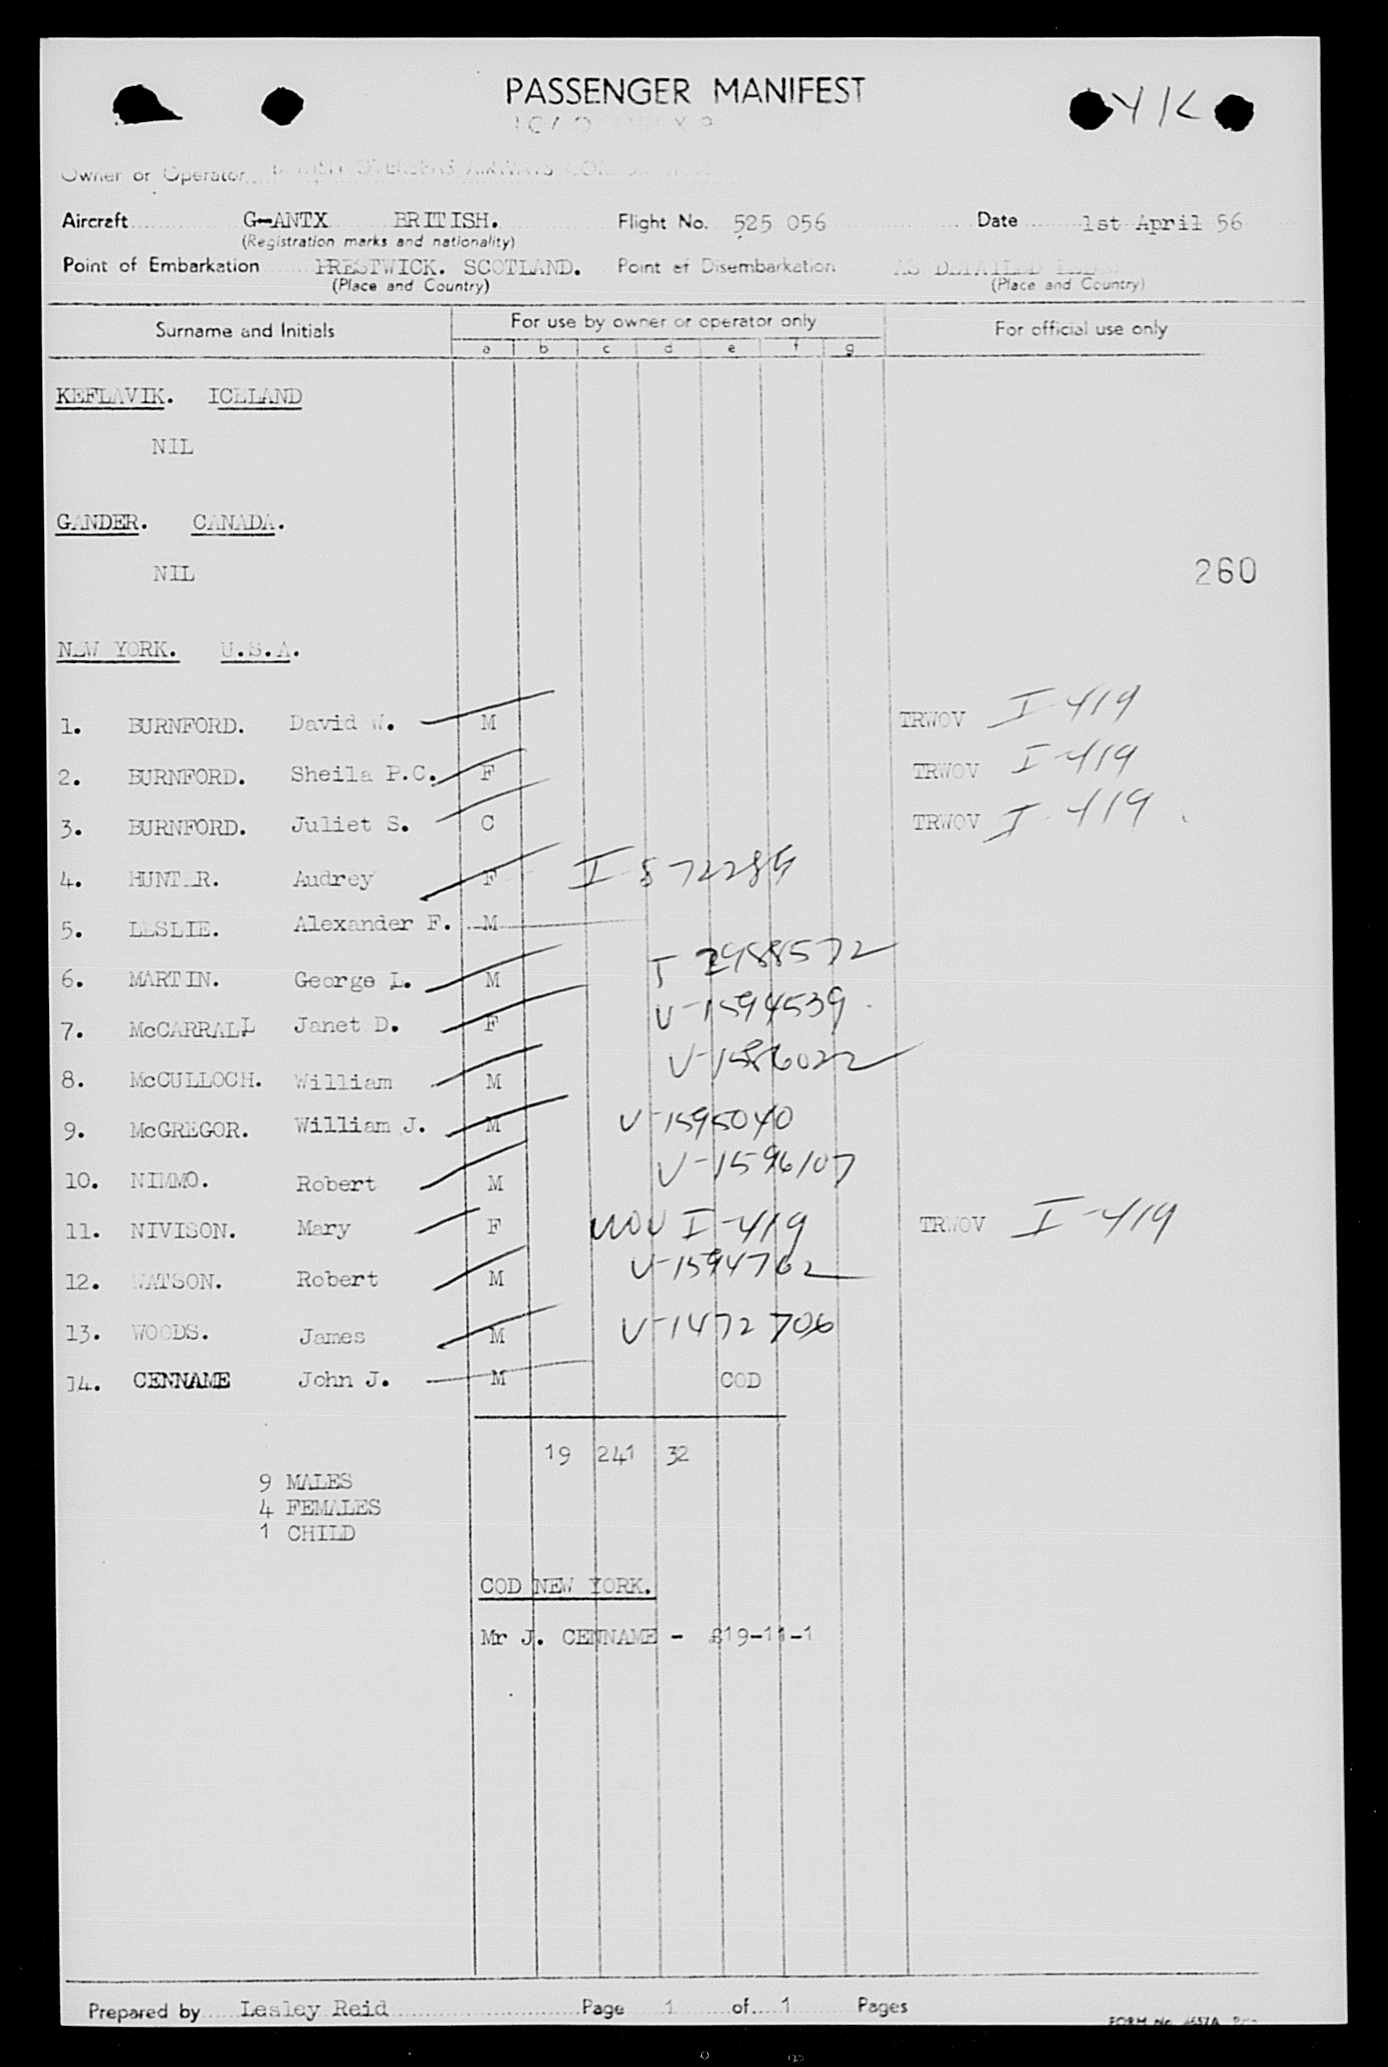 PASSENGER MANIFEST
Owner or Operator OVERSEAS AIRWAYS
Aircraft G-ANTX BRITISH. Flight No. 525 056 Date 1st April 56
(Registration marks and nationality)
Point of Embarkation PRESTWICK. SCOTLAND. Point of Disembarkation AS DETAILED
(Place and Country) (Place and Country)
Surname and Initials For use by owner or operator only For official use only
a b c d e f g
KEFLAVIK. ICELAND
NIL
GANDER. CANADA.
NIL
260
NEW YORK. U.S.A.
1. BURNFORD. David W. M TRWOV I-419
2. BURNFORD. Sheila P.C. F TRWOV I-419
3. BURNFORD. Juliet S. C TRWOV I-419
4. HUNTER. Audrey F I 872289
5. LESLIE. Alexander F. M
6. MARTIN. George L. M 2988572
7. McCARRALL Janet D. F V-1594539
8. McCULLOCH. William M V-1586022
9. McGREGOR. William J. M V-1595040
10. NIMMO. Robert M V-1596107
11. NIVISON. Mary F I-419 TRWOV I-419
12. WATSON. Robert M V-1594762
13. WOODS. James M V-1472706
14. CENNAME John J. M COD
19 241 32
9 MALES
4 FEMALES
1 CHILD
COD NEW YORK.
Mr J. CENNAME - £19-11-1
Prepared by Lesley Reid Page 1 of 1 Pages
FORM No.